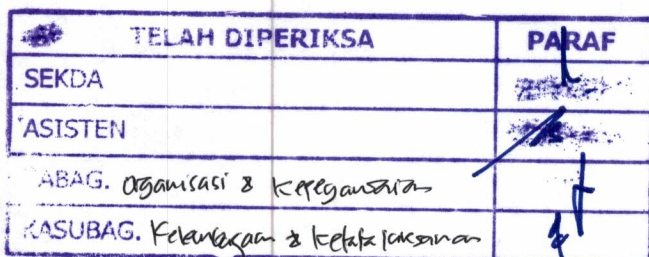 TELAH DIPERIKSA PARAF
SEKDA
ASISTEN
ABAG. Organisasi & Kepegawaian
KASUBAG. Kelembagaan & Ketatalaksanaan